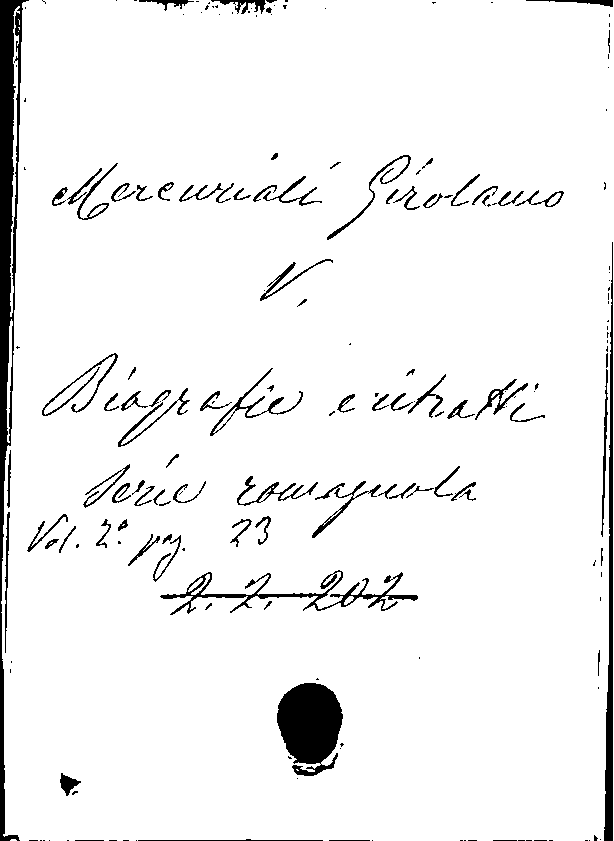 Mercuriali Girolamo
V.
Biografie e ritratti
serie romagnola
Vol. 2° pag. 23
2. 2. 202